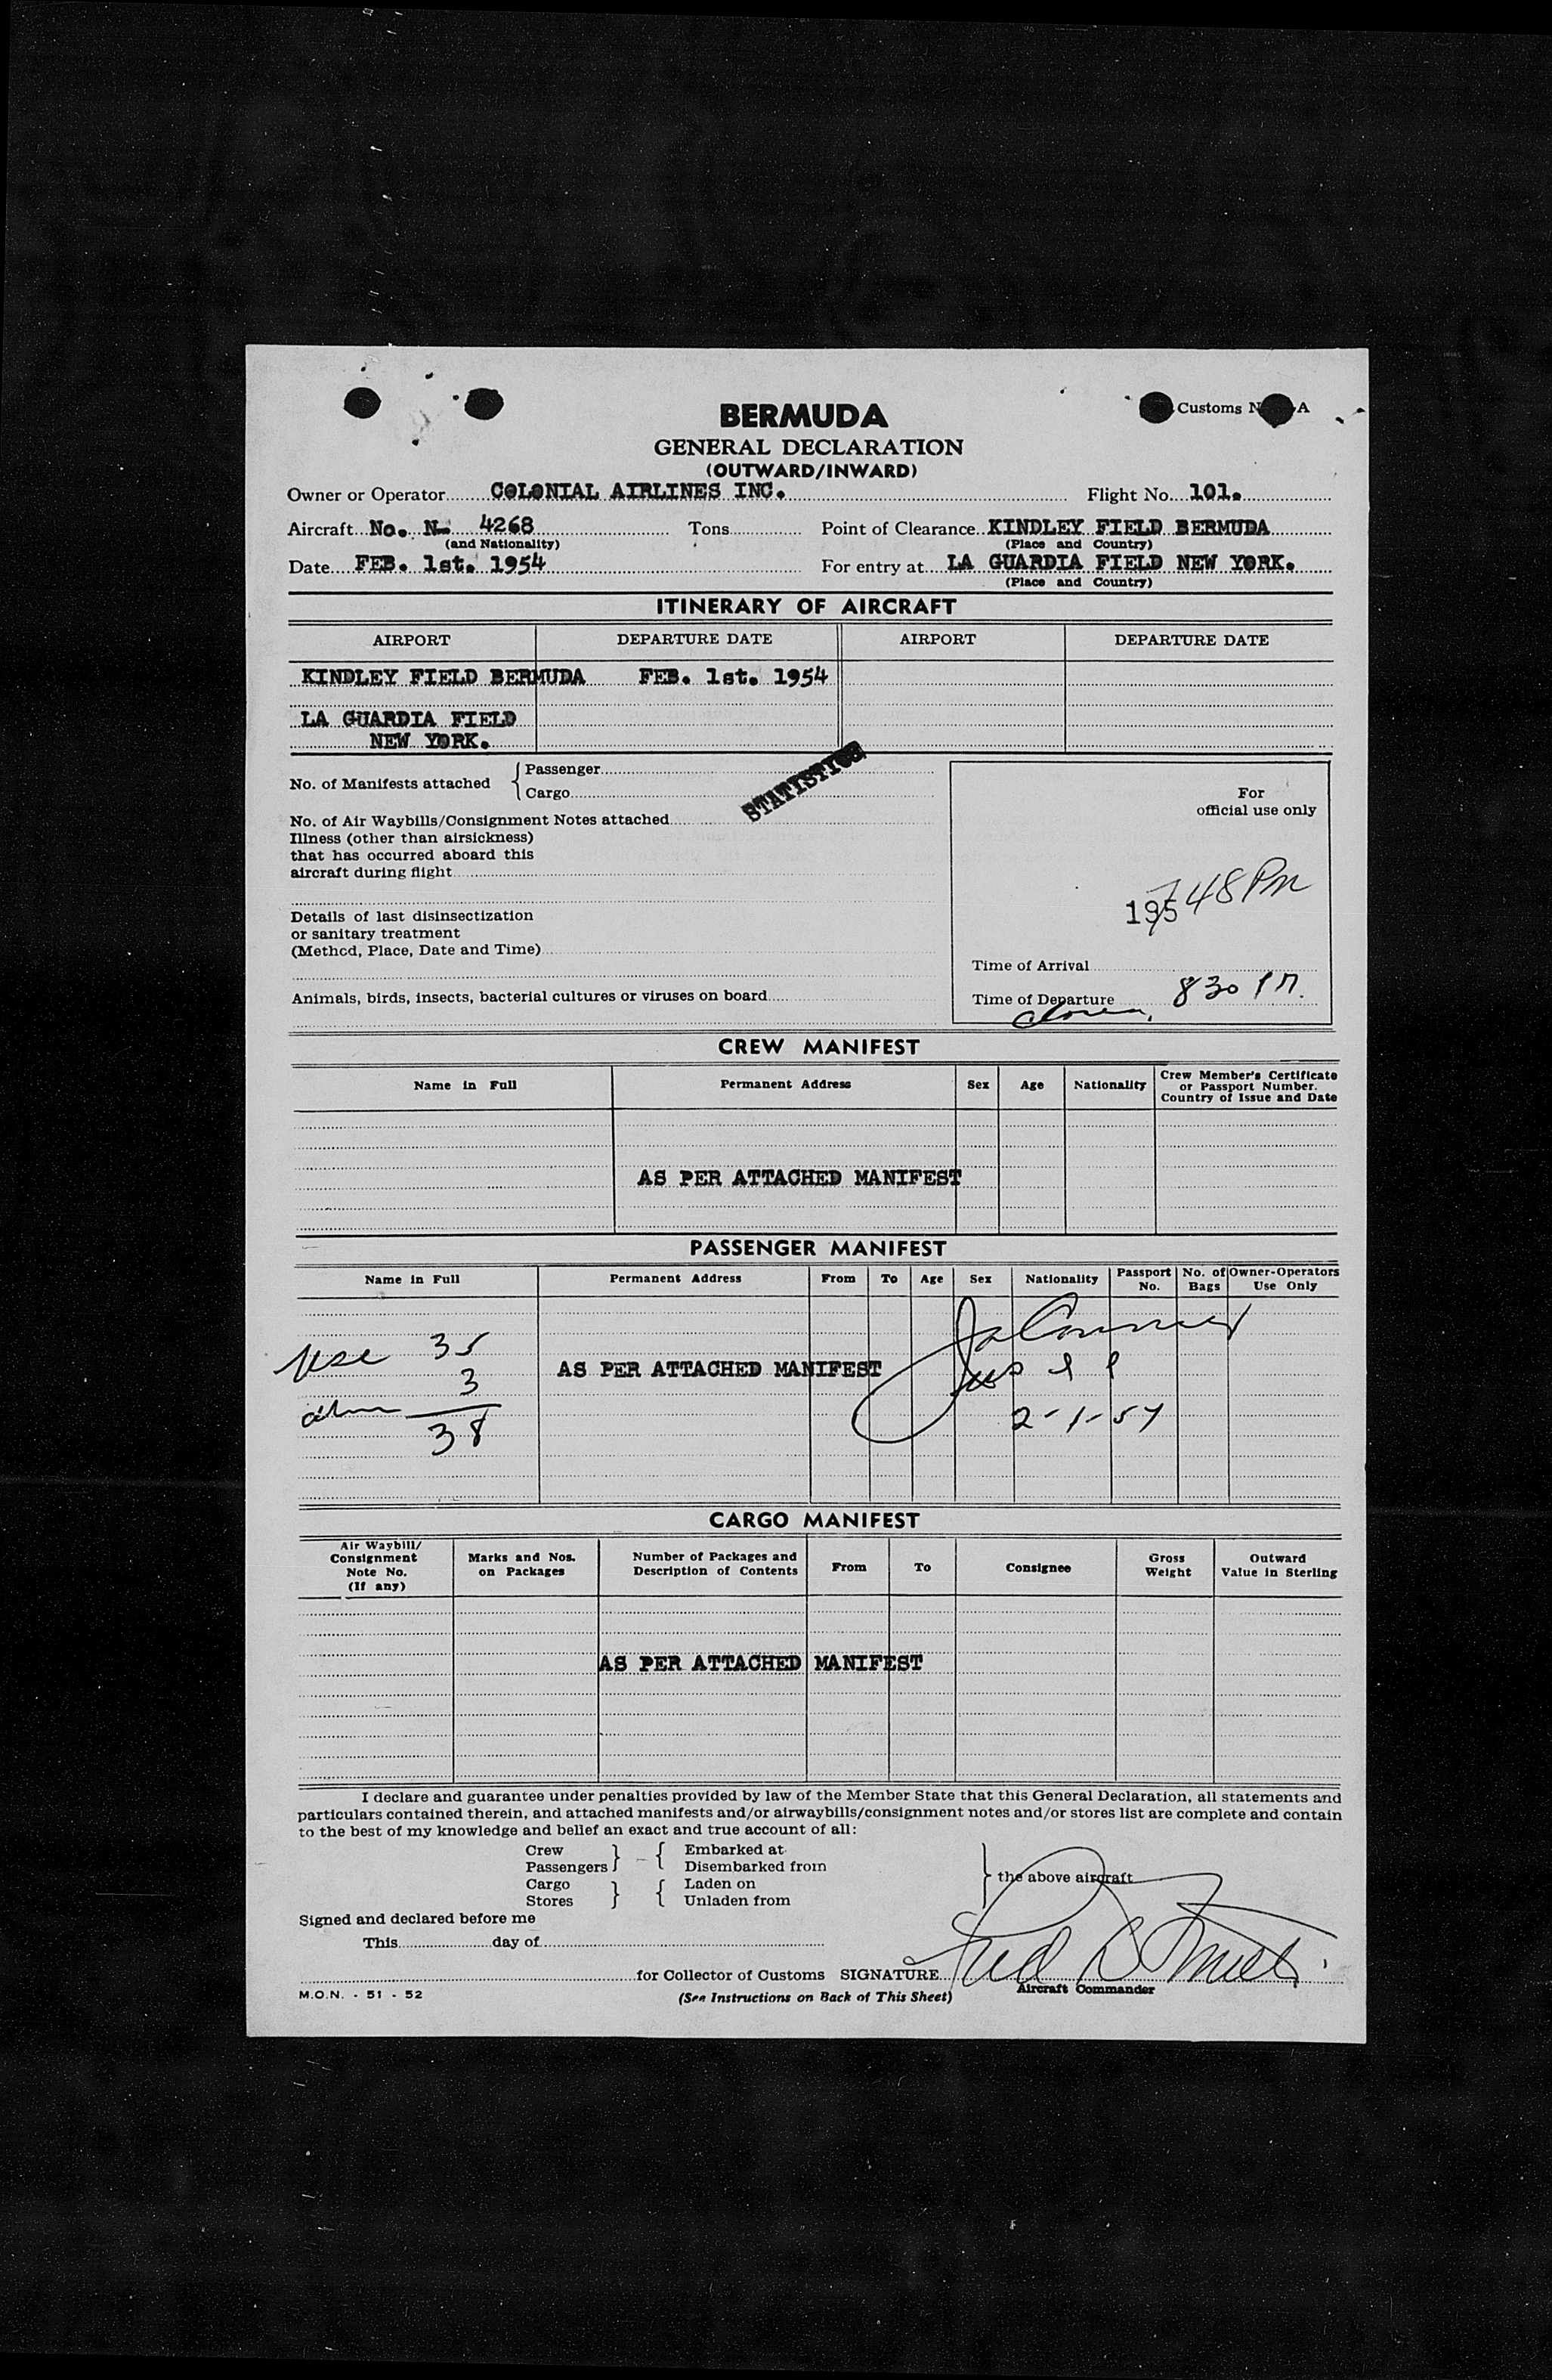 Customs N A
BERMUDA
GENERAL DECLARATION
(OUTWARD/INWARD)
Owner or Operator COLONIAL AIRLINES INC. Flight No. 101.
Aircraft No. N- 4268 Tons Point of Clearance KINDLEY FIELD BERMUDA
(and Nationality) (Place and Country)
Date FEB. 1st. 1954 For entry at LA GUARDIA FIELD NEW YORK.
(Place and Country)
ITINERARY OF AIRCRAFT
AIRPORT DEPARTURE DATE AIRPORT DEPARTURE DATE
KINDLEY FIELD BERMUDA FEB. 1st. 1954
LA GUARDIA FIELD
NEW YORK.
No. of Manifests attached { Passenger
Cargo
STATISTICS
No. of Air Waybills/Consignment Notes attached
Illness (other than airsickness)
that has occurred aboard this
aircraft during flight
Details of last disinsectization
or sanitary treatment
(Method, Place, Date and Time)
Animals, birds, insects, bacterial cultures or viruses on board
For
official use only
195 748 PM
Time of Arrival
Time of Departure 830 PM.
CREW MANIFEST
Name in Full Permanent Address Sex Age Nationality Crew Member's Certificate
or Passport Number.
Country of Issue and Date
AS PER ATTACHED MANIFEST
PASSENGER MANIFEST
Name in Full Permanent Address From To Age Sex Nationality Passport No. No. of Bags Owner-Operators Use Only
USC 35
AS PER ATTACHED MANIFEST
3
38
2-1-54
CARGO MANIFEST
Air Waybill/
Consignment
Note No.
(If any)
Marks and Nos.
on Packages
Number of Packages and
Description of Contents
From To Consignee Gross
Weight
Outward
Value in Sterling
AS PER ATTACHED MANIFEST
I declare and guarantee under penalties provided by law of the Member State that this General Declaration, all statements and
particulars contained therein, and attached manifests and/or airwaybills/consignment notes and/or stores list are complete and contain
to the best of my knowledge and belief an exact and true account of all:
Crew } { Embarked at
Passengers Disembarked from
Cargo } { Laden on
Stores Unladen from
} the above aircraft
Signed and declared before me
This day of
for Collector of Customs SIGNATURE
Aircraft Commander
M.O.N. - 51 - 52 (See Instructions on Back of This Sheet)